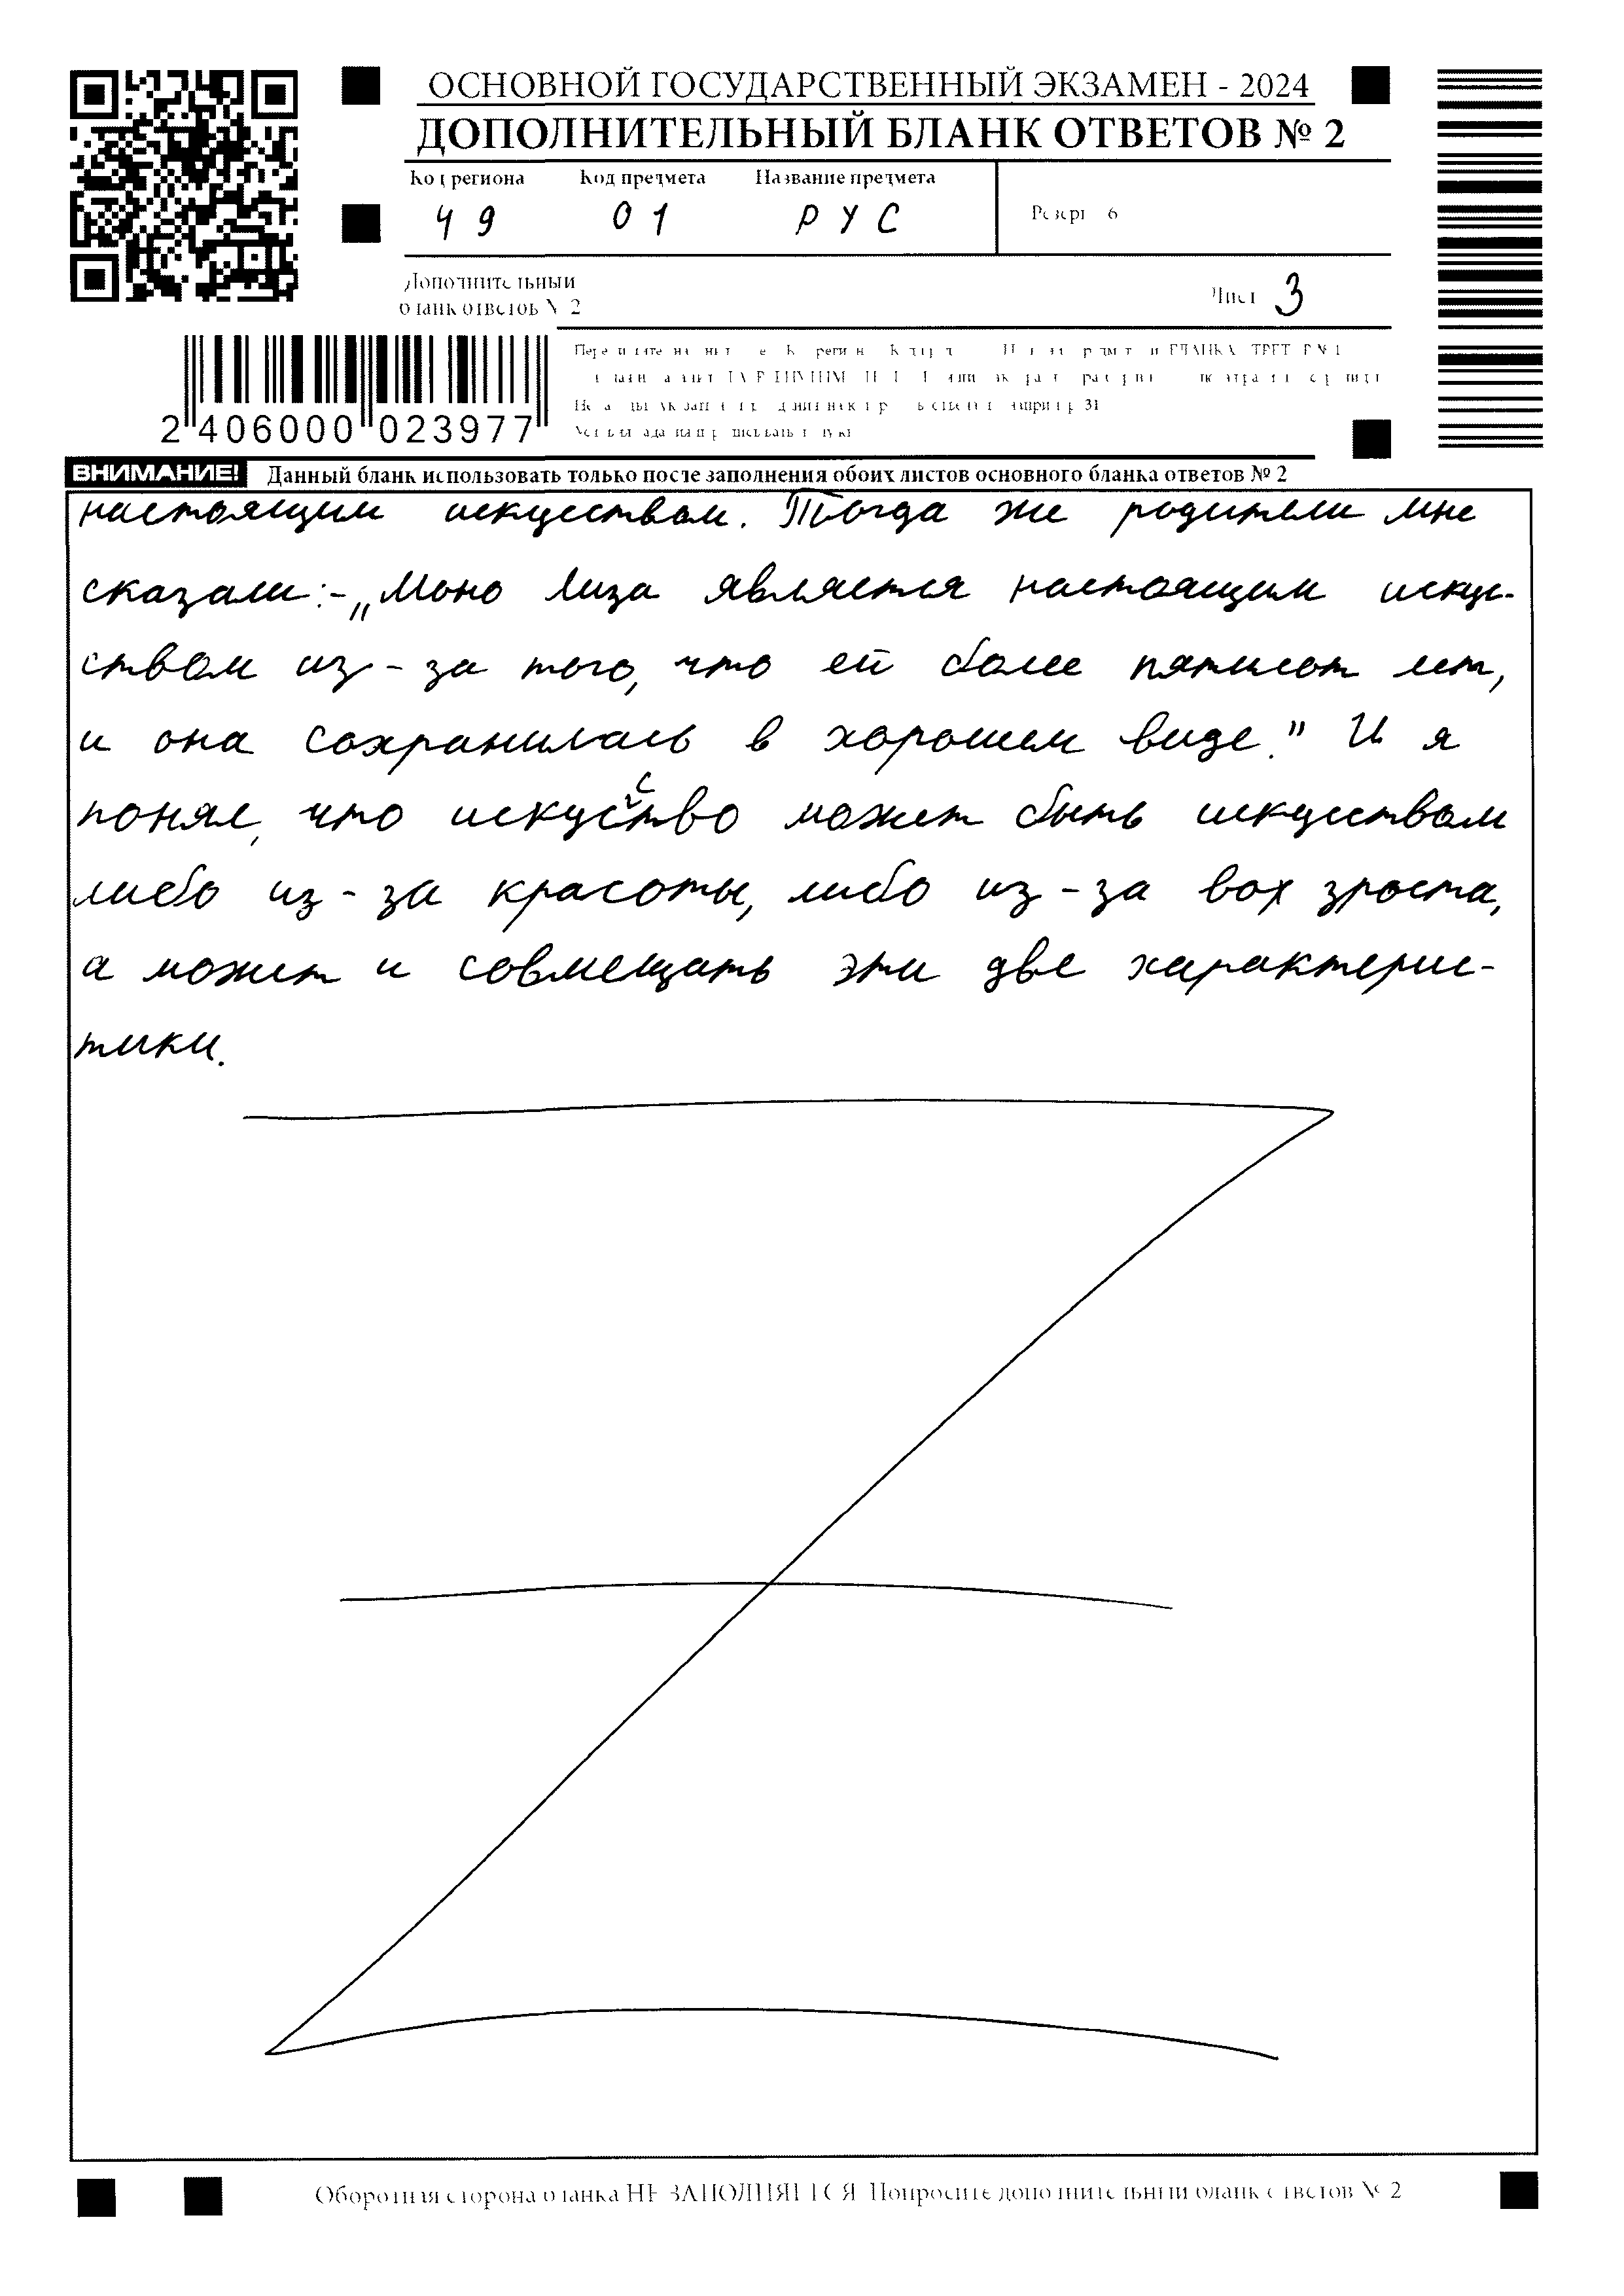 ОСНОВНОЙ ГОСУДАРСТВЕННЫЙ ЭКЗАМЕН - 2024
ДОПОЛНИТЕЛЬНЫЙ БЛАНК ОТВЕТОВ № 2
Код региона Код предмета Название предмета
49 01 РУС
Резерв - 6
Дополнительный
бланк ответов № 2
Лист 3
2 406000 023977
ВНИМАНИЕ! Данный бланк использовать только после заполнения обоих листов основного бланка ответов № 2
настоящим искуством. Тогда же родители мне
сказали:-„Моно Лиза является настоящим искус-
ством из-за того, что ей более пятисот лет,
и она сохранилась в хорошем виде." И я
понял, что искусство может быть искуством
либо из-за красоты, либо из-за вох зроста,
а может и совмещать эти две характерис-
тики.
Оборотная сторона бланка НЕ ЗАПОЛНЯЕТСЯ. Попросите дополнительный бланк ответов № 2